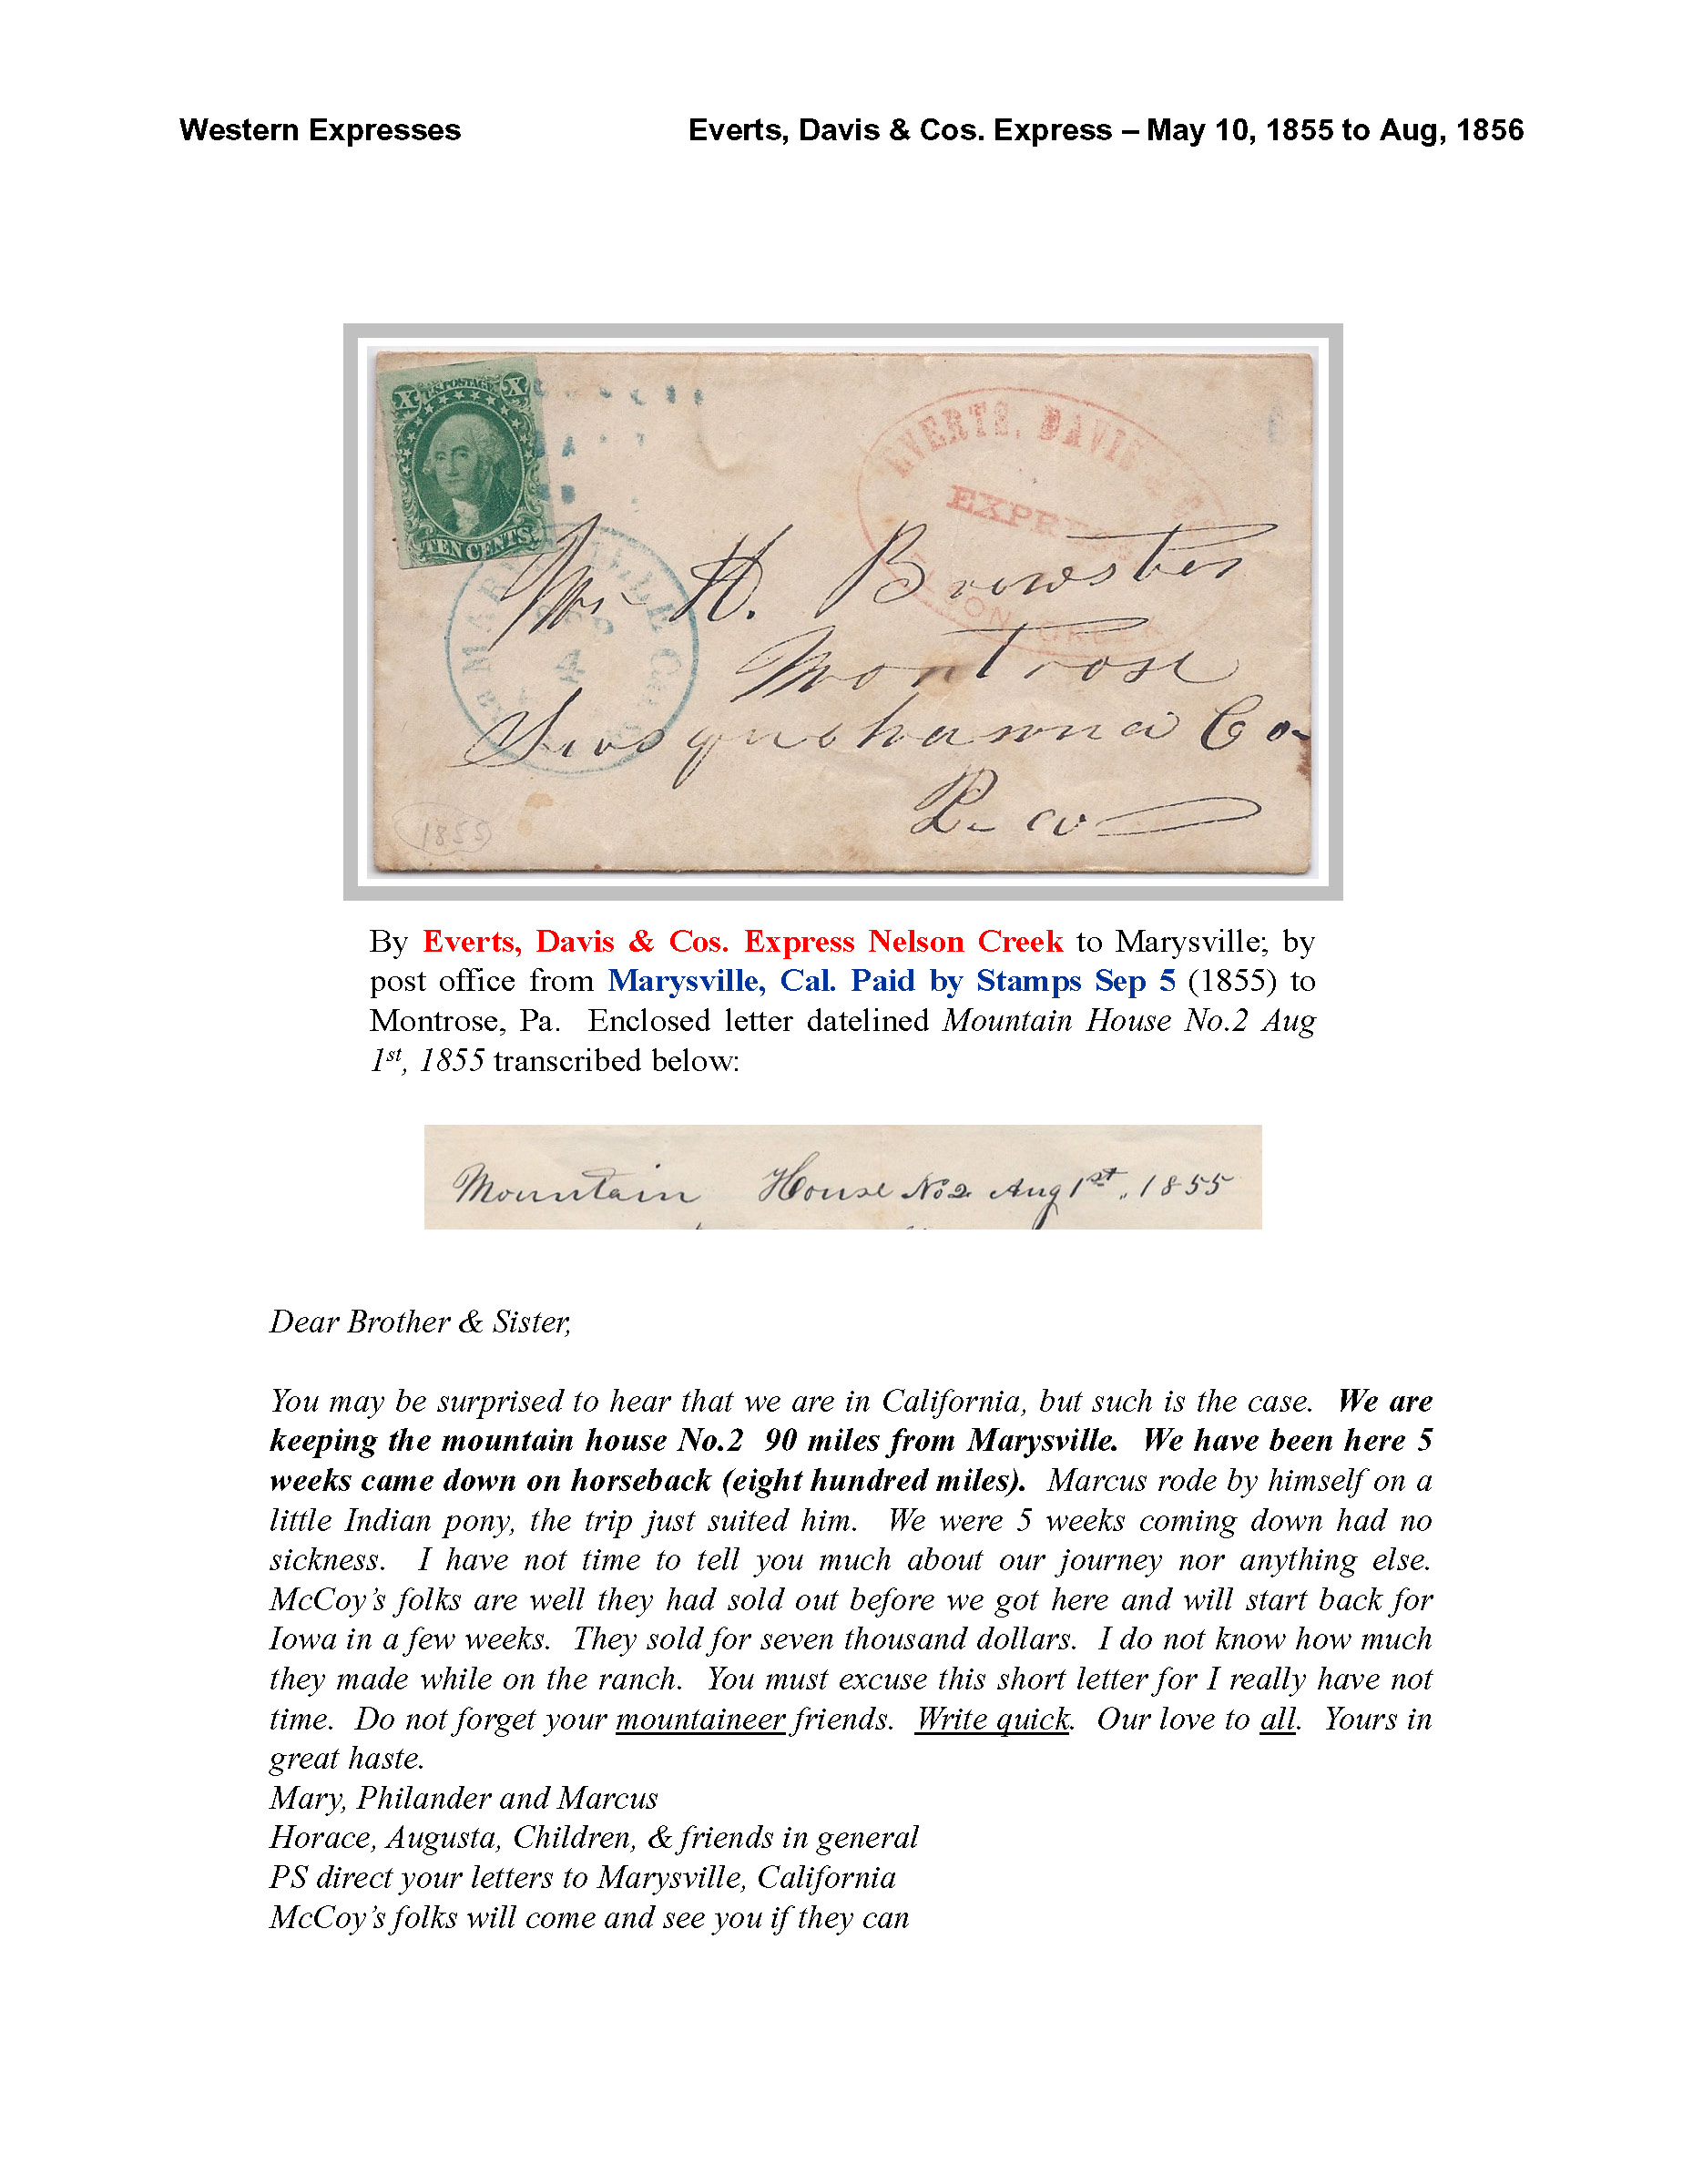 Western Expresses Everts, Davis & Cos. Express – May 10, 1855 to Aug, 1856
X U.S. POSTAGE X
TEN CENTS
EVERTS, DAVIS & Co
EXPRESS
MARYSVILLE Cal
SEP
4
Mr H. Brewster
Montrose
Susquehanna Co
1855
By Everts, Davis & Cos. Express Nelson Creek to Marysville; by
post office from Marysville, Cal. Paid by Stamps Sep 5 (1855) to
Montrose, Pa. Enclosed letter datelined Mountain House No.2 Aug
1st, 1855 transcribed below:
Mountain House No 2 Aug 1st, 1855
Dear Brother & Sister,
You may be surprised to hear that we are in California, but such is the case. We are
keeping the mountain house No.2 90 miles from Marysville. We have been here 5
weeks came down on horseback (eight hundred miles). Marcus rode by himself on a
little Indian pony, the trip just suited him. We were 5 weeks coming down had no
sickness. I have not time to tell you much about our journey nor anything else.
McCoy's folks are well they had sold out before we got here and will start back for
Iowa in a few weeks. They sold for seven thousand dollars. I do not know how much
they made while on the ranch. You must excuse this short letter for I really have not
time. Do not forget your mountaineer friends. Write quick. Our love to all. Yours in
great haste.
Mary, Philander and Marcus
Horace, Augusta, Children, & friends in general
PS direct your letters to Marysville, California
McCoy's folks will come and see you if they can